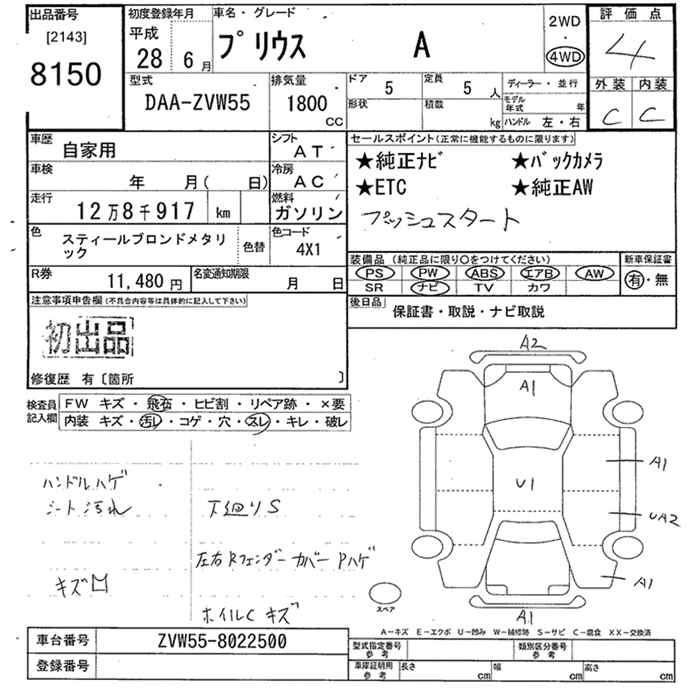 出品番号
[2143]
8150
初度登録年月
平成
28 6月
車名・グレード
プリウス A
2WD
・
4WD
評価点
4
外装 内装
C C
型式
DAA-ZVW55
排気量
1800
CC
ドア 5
形状
定員 5人
積載 kg
ディーラー・並行
モデル年式 年
ハンドル 左・右
車歴 自家用
シフト AT
車検 年 月( 日)
冷房 AC
走行 12万8千917 km
燃料 ガソリン
色 スティールブロンドメタリック
色替
色コード 4X1
R券 11,480円
名変通知期限 月 日
セールスポイント(正常に機能するものに限ります)
★純正ナビ ★バックカメラ
★ETC ★純正AW
プッシュスタート
装備品(純正品に限り○をつけてください)
新車保証書
PS PW ABS エアB AW
有・無
SR ナビ TV カワ
後日品
保証書・取説・ナビ取説
注意事項申告欄(不具合内容等は具体的に記入して下さい)
初出品
修復歴 有〔箇所 〕
検査員記入欄
FW キズ・飛石・ヒビ割・リペア跡・×要
内装 キズ・汚レ・コゲ・穴・スレ・キレ・破レ
ハンドルハゲ
シート汚れ
下廻りS
左右Rフェンダーカバー Pハゲ
キズ
ホイルC キズ
A2
A1
U1
A1
UA2
A1
A1
スペア
A−キズ E−エクボ U−凹み W−補修跡 S−サビ C−腐食 XX−交換済
車台番号 ZVW55-8022500
登録番号
型式指定番号 参考
類別区分番号 参考
車庫証明用 参考
長さ cm
幅 cm
高さ cm